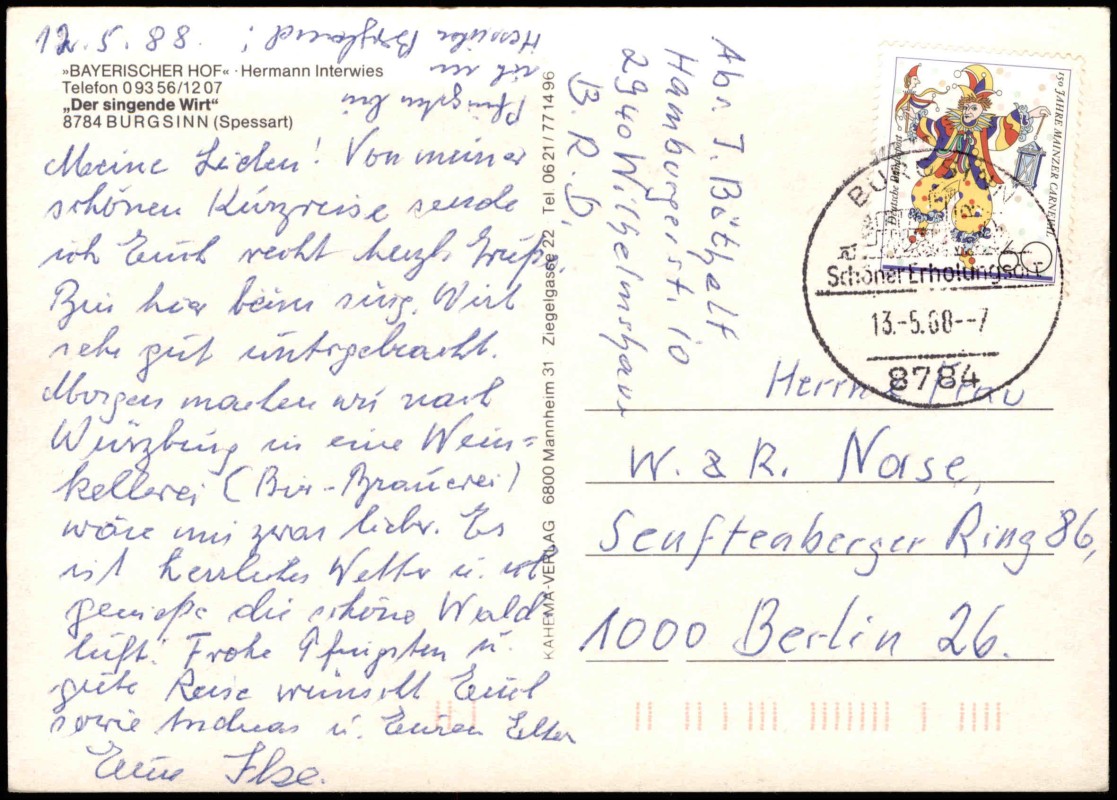 12.5.88.
»BAYERISCHER HOF« · Hermann Interwies
Telefon 0 93 56/12 07
„Der singende Wirt“
8784 BURGSINN (Spessart)
Meine Lieben! Von meiner
schönen Kurzreise sende
ich Euch recht herzl. Grüße,
Bin hier beim sing. Wirt
sehr gut untergebracht.
Morgen machen wir nach
Würzburg in eine Wein=
kellerei (Bier-Brauerei)
wäre mir zwar lieber. Es
ist herrliches Wetter u. ich
genieße die schöne Wald
luft. Frohe Pfingsten u.
gute Reise wünscht Euch
sowie Andreas u. Euren Eltern
Eure Ilse.
Pfingsten bin
ich in
KAHEMA-VERLAG 6800 Mannheim 31 Ziegelgasse 22 Tel. 06 21 / 77 14 96
Abs. I. Böthelt
Hamburgerstr. 10
2940 Wilhelmshav.
B.R.D.
150 JAHRE MAINZER CARNEVAL
Deutsche Bundespost
60
Schöner Erholungsort
13.-5.88--7
8784
Herrn & Frau
W. & R. Nase,
Senftenberger Ring 86,
1000 Berlin 26.